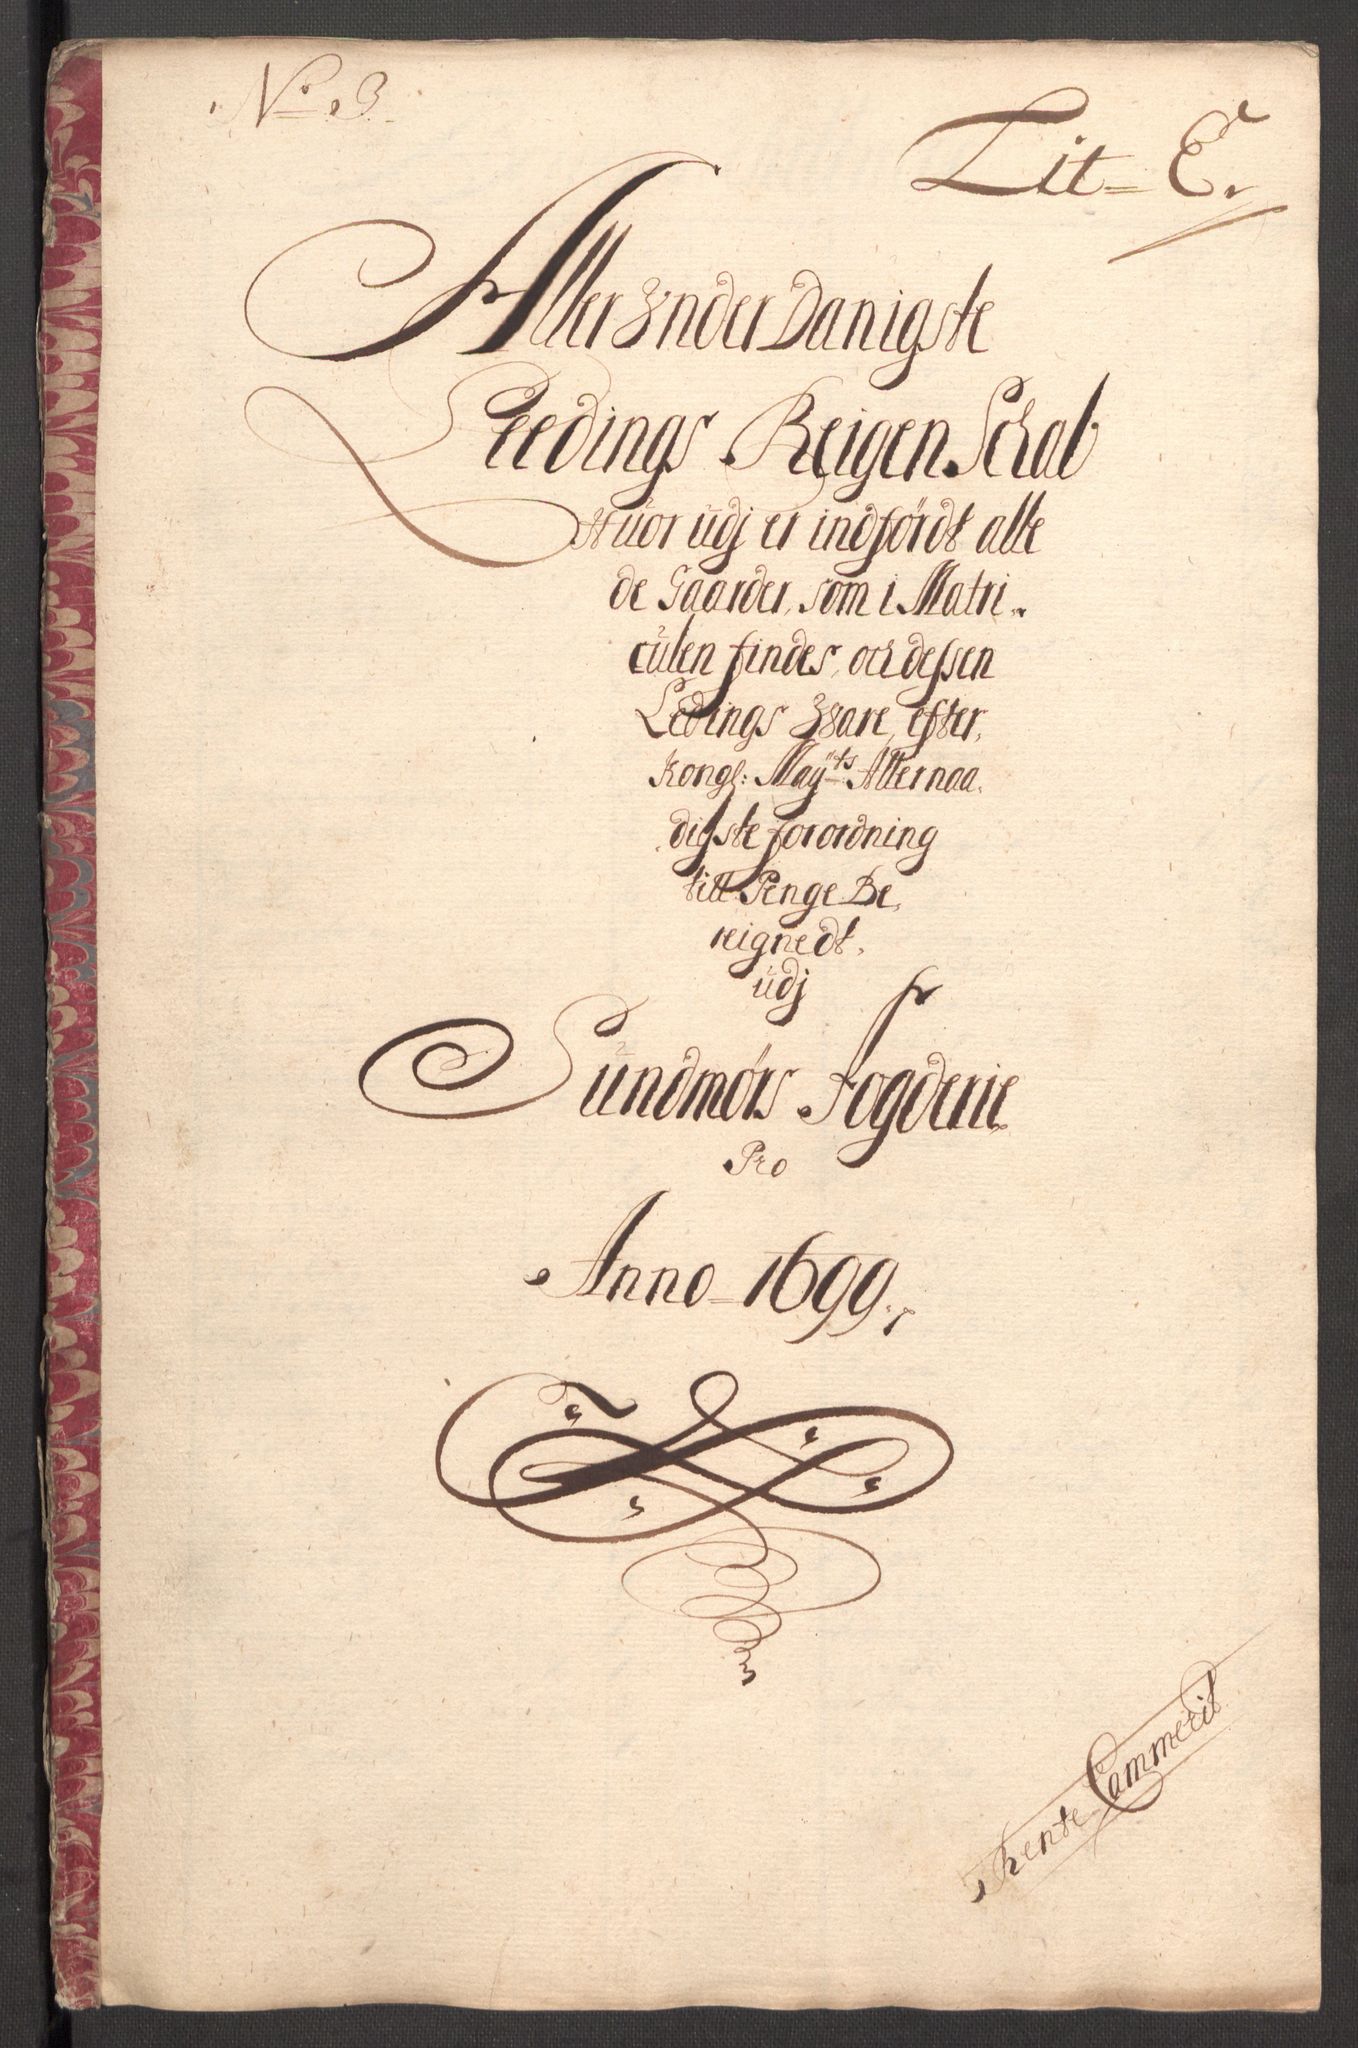 No 3.
Lit = E.
Allerunder Danigste
Leedings Reigen Schab
Huor udj er indfördt alle
de Gaarder, som i Matri„
culen findes, och dessen
Ledings Ware, efter,
Kongl: Mayts Allernaa„
digste forordning
till Penge Be„
reignedt,
udj
Sundmørs Fogderie
Pro
Anno = 1699.
Rente Cammerit